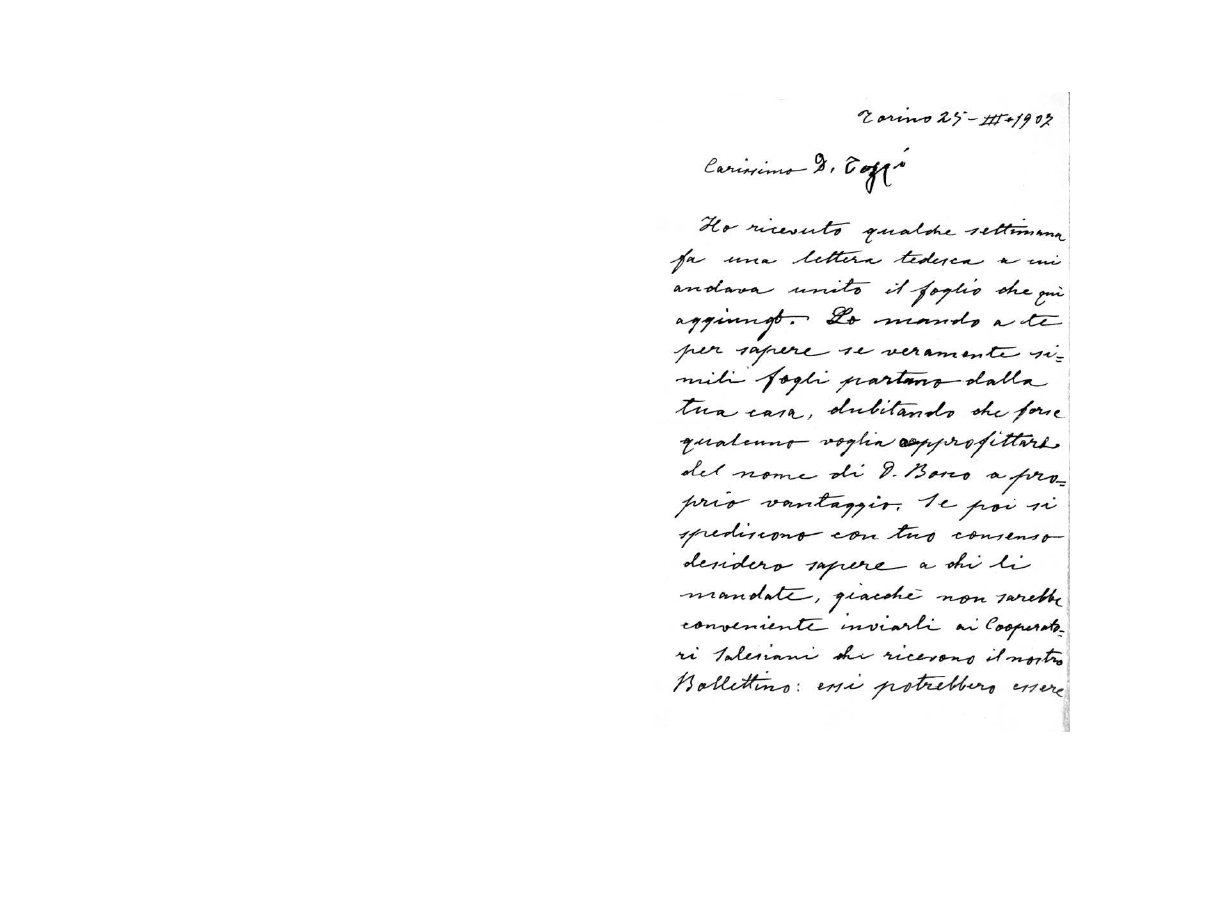 Torino 25-III-1907
Carissimo D.
Ho ricevuto qualche settimana
fa una lettera tedesca a cui
andava unito il foglio che qui
aggiungo. Lo mando a te
per sapere se veramente si=
mili fogli partano dalla
tua casa, dubitando che forse
qualcuno voglia approfittare
del nome di D. Bosco a pro=
prio vantaggio. Se poi si
spediscono con tuo consenso
desidero sapere a chi li
mandate, giacchè non sarebbe
conveniente inviarli ai Cooperato=
ri Salesiani che ricevono il nostro
Bollettino: essi potrebbero essere